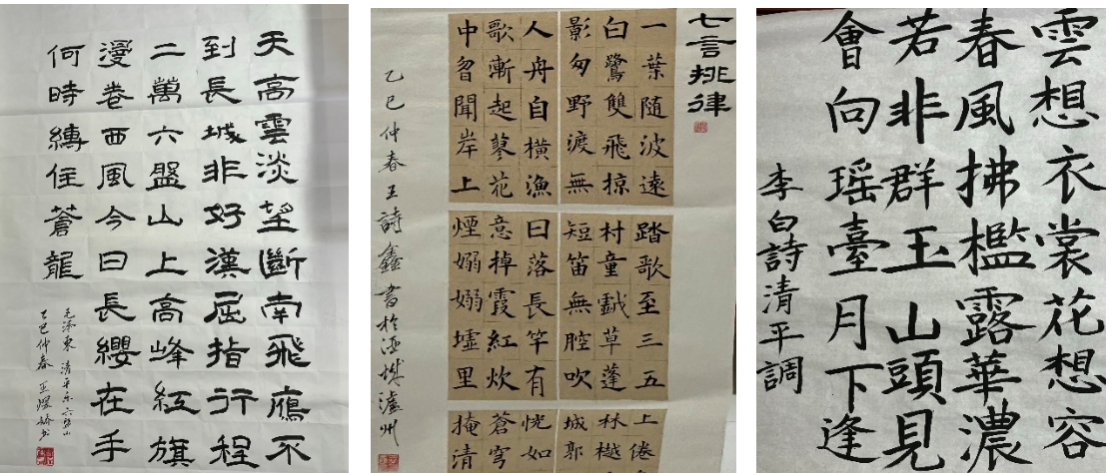 天高雲淡望斷南飛鴈不
到長城非好漢屈指行程
二萬六盤山上高峰紅旗
漫卷西風今日長纓在手
何時縛住蒼龍
毛澤東 清平乐六盘山
乙巳仲春
七言排律
一葉隨波遠
白鷺雙飛掠
影匆野渡無
人舟自橫漁
歌漸起蓼花
中忽聞岸上
踏歌至三五
村童戲草蓬
短笛無腔吹
日落長竿有
意掉霞紅炊
煙嫋嫋墟里
上倦
林樾
城郭
恍如
蒼穹
掩清
乙巳仲春王詩鑫書於酒城瀘州
雲想衣裳花想容
春風拂檻露華濃
若非群玉山頭見
會向瑤臺月下逢
李白詩清平調